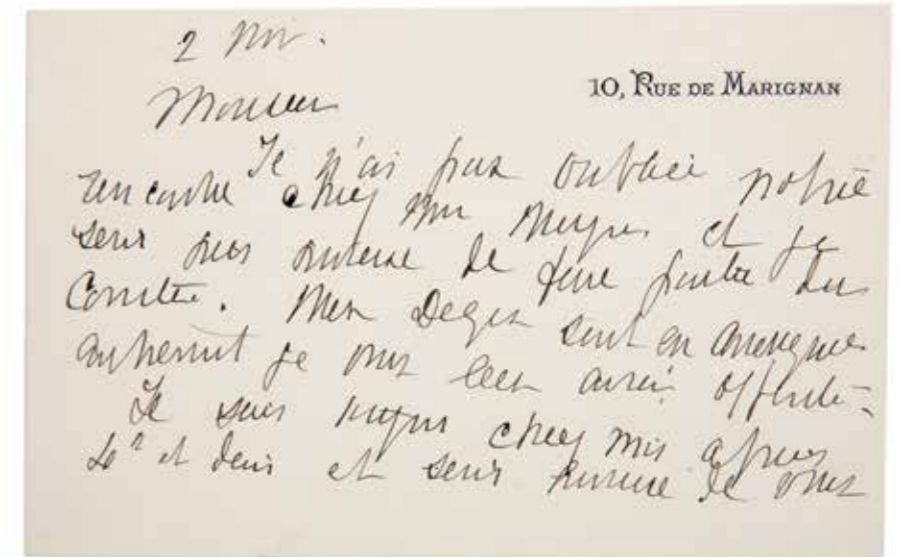 2 Nov.
10, RUE DE MARIGNAN
Monsieur
Je n'ai pas oublié notre
rencontre chez Mr et je
serai heureuse de faire partie du
Comité. Mes Degas sont en Amérique
autrement je vous les aurais offerts.
Je suis toujours chez moi après
4h et demi et serai heureuse de vous